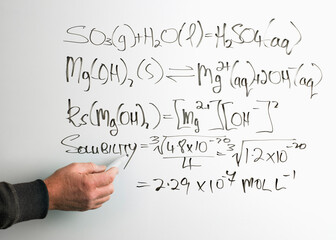 SO₃(g)+H₂O(l)=H₂SO₄(aq)
Mg(OH)₂(s)⇌Mg²⁺(aq)+2OH⁻(aq)
ks(Mg(OH)₂)=[Mg²⁺][OH⁻]²
SOLUBILITY=³√(4.8×10⁻²⁰/4)=³√(1.2×10⁻²⁰)
=2.29×10⁻⁷ MOL L⁻¹